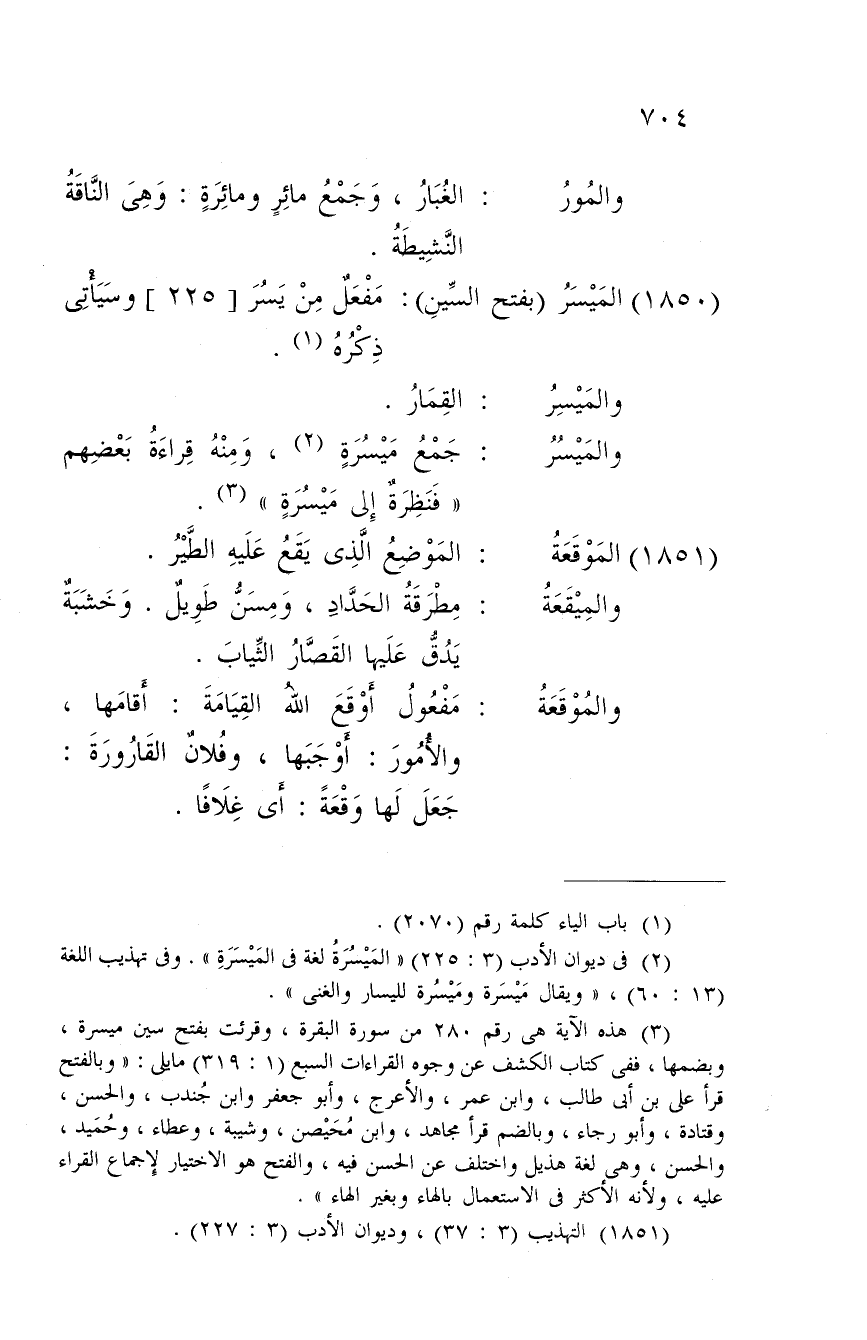 ٧٠٤
والمُورُ : الغُبَارُ ، وَجَمْعُ مائِرٍ ومائِرَةٍ : وَهِىَ النَّاقَةُ
النَّشِيطَةُ .
(١٨٥٠) المَيْسَرُ (بفتح السِّينِ): مَفْعَلٌ مِنْ يَسُرَ [ ٢٢٥ ] وسَيَأْتِى
ذِكْرُهُ (١) .
والمَيْسِرُ : القِمَارُ .
والمَيْسُرُ : جَمْعُ مَيْسُرَةٍ (٢) ، وَمِنْهُ قِراءَةُ بَعْضِهم
« فَنَظِرَةٌ إِلى مَيْسُرَةٍ » (٣) .
(١٨٥١) المَوْقَعَةُ : المَوْضِعُ الَّذِى يَقَعُ عَلَيهِ الطَّيْرُ .
والمِيْقَعَةُ : مِطْرَقَةُ الحَدَّادِ ، وَمِسَنٌّ طَوِيلٌ . وَخَشَبَةٌ
يَدُقُّ عَلَيها القَصَّارُ الثِّيابَ .
والمُوْقَعَةُ : مَفْعُولُ أَوْقَعَ اللهُ القِيَامَةَ : أَقامَها ،
والأُمُورَ : أَوْجَبَها ، وفُلانٌ القَارُورَةَ :
جَعَلَ لَها وَقْعَةً : أَى غِلَافًا .
(١) باب الياء كلمة رقم (٢٠٧٠) .
(٢) فى ديوان الأدب (٣ : ٢٢٥) « المَيْسُرَةُ لغة فى المَيْسَرَةِ » . وفى تهذيب اللغة
(١٣ : ٦٠) ، « ويقال مَيْسَرة ومَيْسُرة لليسار والغنى » .
(٣) هذه الآية هى رقم ٢٨٠ من سورة البقرة ، وقرئت بفتح سين ميسرة ،
وبضمها ، ففى كتاب الكشف عن وجوه القراءات السبع (١ : ٣١٩) مايلى : « وبالفتح
قرأ على بن أبى طالب ، وابن عمر ، والأعرج ، وأبو جعفر وابن جُندب ، والحسن ،
وقتادة ، وأبو رجاء ، وبالضم قرأ مجاهد ، وابن مُحَيْصن ، وشيبة ، وعطاء ، وحُمَيد ،
والحسن ، وهى لغة هذيل واختلف عن الحسن فيه ، والفتح هو الاختيار لإجماع القراء
عليه ، ولأنه الأكثر فى الاستعمال بالهاء وبغير الهاء » .
(١٨٥١) التهذيب (٣ : ٣٧) ، وديوان الأدب (٣ : ٢٢٧) .